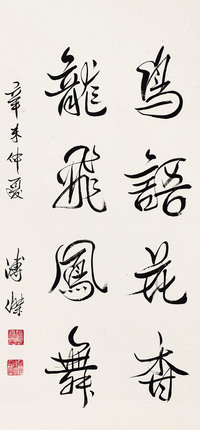 鳥語花香
龍飛鳳舞
辛未仲夏 溥傑